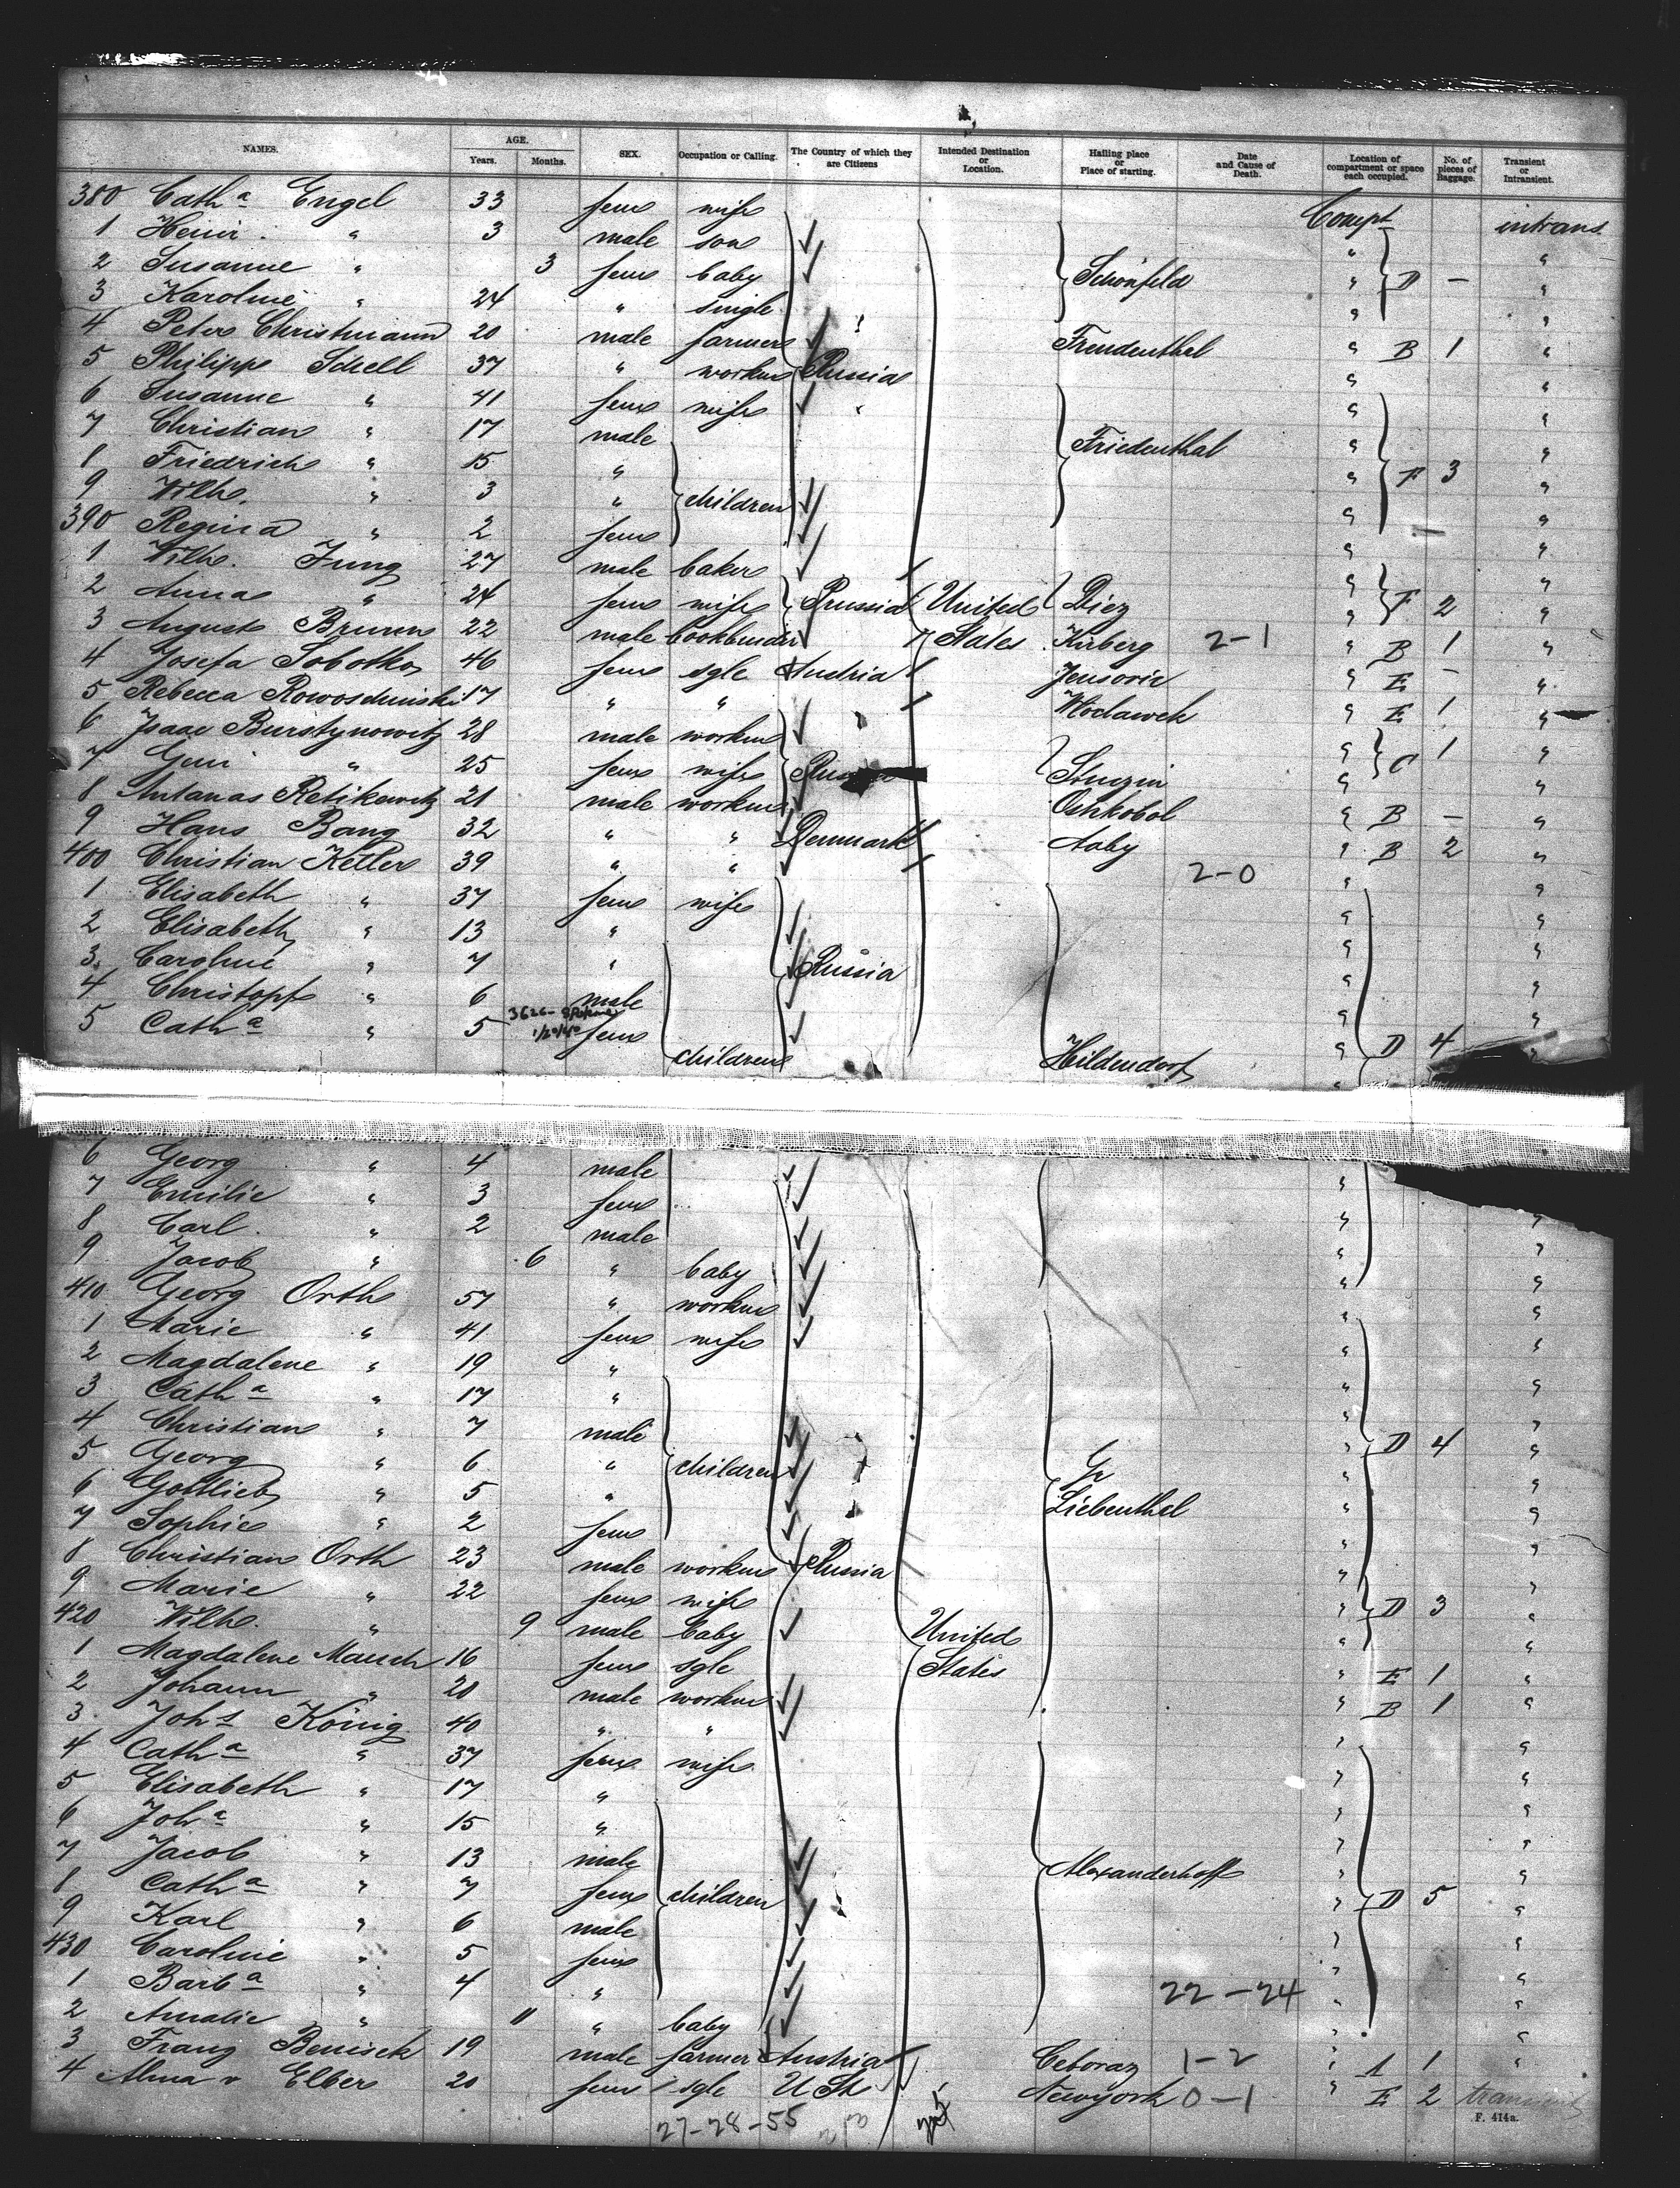 NAMES. AGE. Years. Months. SEX. Occupation or Calling. The Country of which they are Citizens Intended Destination or Location. Hailing place or Place of starting. Date and Cause of Death. Location of compartment or space each occupied. No. of pieces of Baggage. Transient or Intransient.
380 Cath a Engel 33 fem wife Compt intrans
1 Heinr. " 3 male son "  "
2 Susanne " 3 fem baby Schönfeld " D — "
3 Karoline " 24 " single " "
4 Peter Christmann 20 male farmer Freudenthal " B 1 "
5 Philipp Schell 37 " worker Russia " "
6 Susanne " 41 fem wife " "
7 Christian " 17 male Friedenthal " "
8 Friedrich " 15 " " F 3 "
9 Wilh. " 3 " children " "
390 Regina " 2 fem " "
1 Wilh. Jung 27 male baker " "
2 Anna " 24 fem wife Prussia United Diez " F 2 "
3 August Brunn 22 male bookbinder States Kirberg 2-1 " B 1 "
4 Josefa Sobotka 46 fem sgle Austria " E — "
5 Rebecca 17 " " Wloclawek " E 1 "
6 Isaac Burstynowitz 28 male worker " C 1 "
7 " 25 fem wife Russia " "
8 Antanas Retikewitz 21 male worker " B — "
9 Hans Bang 32 " " Denmark Aaby " B 2 "
400 Christian Keller 39 " " 2-0 " "
1 Elisabeth " 37 fem wife " "
2 Elisabeth " 13 " " "
3 Caroline " 7 " Russia " "
4 Christoph " 6 male " "
3626- Spokane
1/29/40
5 Cath a " 5 fem " D 4 "
children Hildendorf
6 Georg " 4 male " "
7 Emilie " 3 fem " "
8 Carl " 2 male " "
9 Jacob " 6 " baby " "
410 Georg Orth 57 " worker " "
1 Marie " 41 fem wife " "
2 Magdalene " 19 " " "
3 Cath a " 17 " " "
4 Christian " 7 male " D 4 "
5 Georg " 6 " children Gr " "
6 Gottlieb " 5 " Liebenthal " "
7 Sophie " 2 fem " "
8 Christian Orth 23 male worker Russia " "
9 Marie " 22 fem wife " D 3 "
420 Wilh. " 9 male baby United " "
1 Magdalene Mauch 16 fem sgle States " E 1 "
2 Johann " 20 male worker " B 1 "
3 Joh s König 40 " " " "
4 Cath a " 37 fem wife " "
5 Elisabeth " 17 " " "
6 Joh a " 15 " " "
7 Jacob " 13 male Alexanderhoff " "
8 Cath a " 7 fem children " D 5 "
9 Karl " 6 male " "
430 Caroline " 5 fem " "
1 Barb a " 4 " 22-24 " "
2 Amalie " 11 " baby " "
3 Franz Benisch 19 male farmer Austria 1-2 " A 1 "
4 Alma v Elber 20 fem sgle U St Newyork 0-1 " E 2 transient
27-28-55
F. 414a.